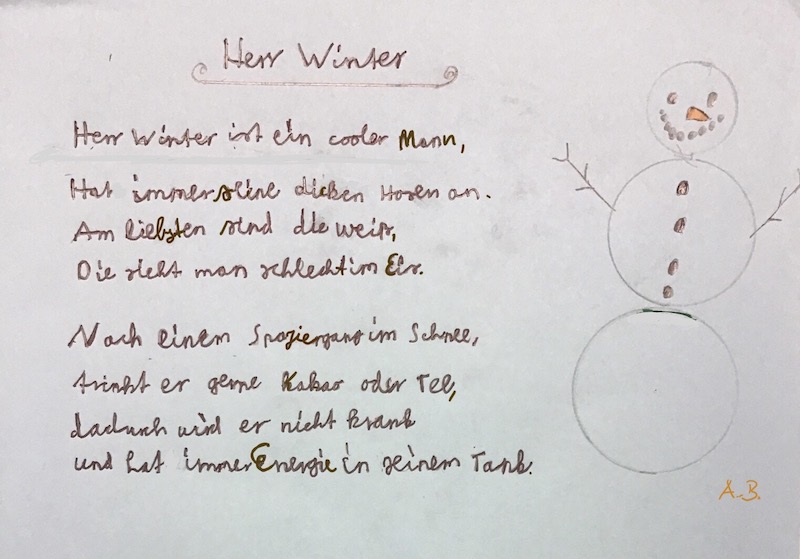 Herr Winter
Herr Winter ist ein cooler Mann,
Hat immer seine dicken Hosen an.
Am liebsten sind die weiß,
Die sieht man schlecht im Eis.
Nach einem Spaziergang im Schnee,
trinkt er gerne Kakao oder Tee,
dadurch wird er nicht krank
und hat immer Energie in seinem Tank.
A.B.